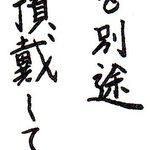 も別途
頂戴して